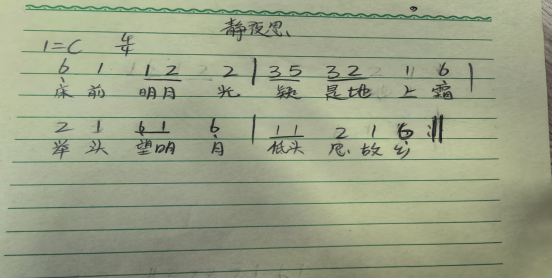 静夜思
1=C 4/4
6̣ 1 1 2 2 | 3 5 3 2 1 6̣ |
床 前 明月 光 疑 是地 上 霜
2 1 6̣ 1 6̣ | 1 1 2 1 6̣ :||
举 头 望明 月 低头 思 故 乡